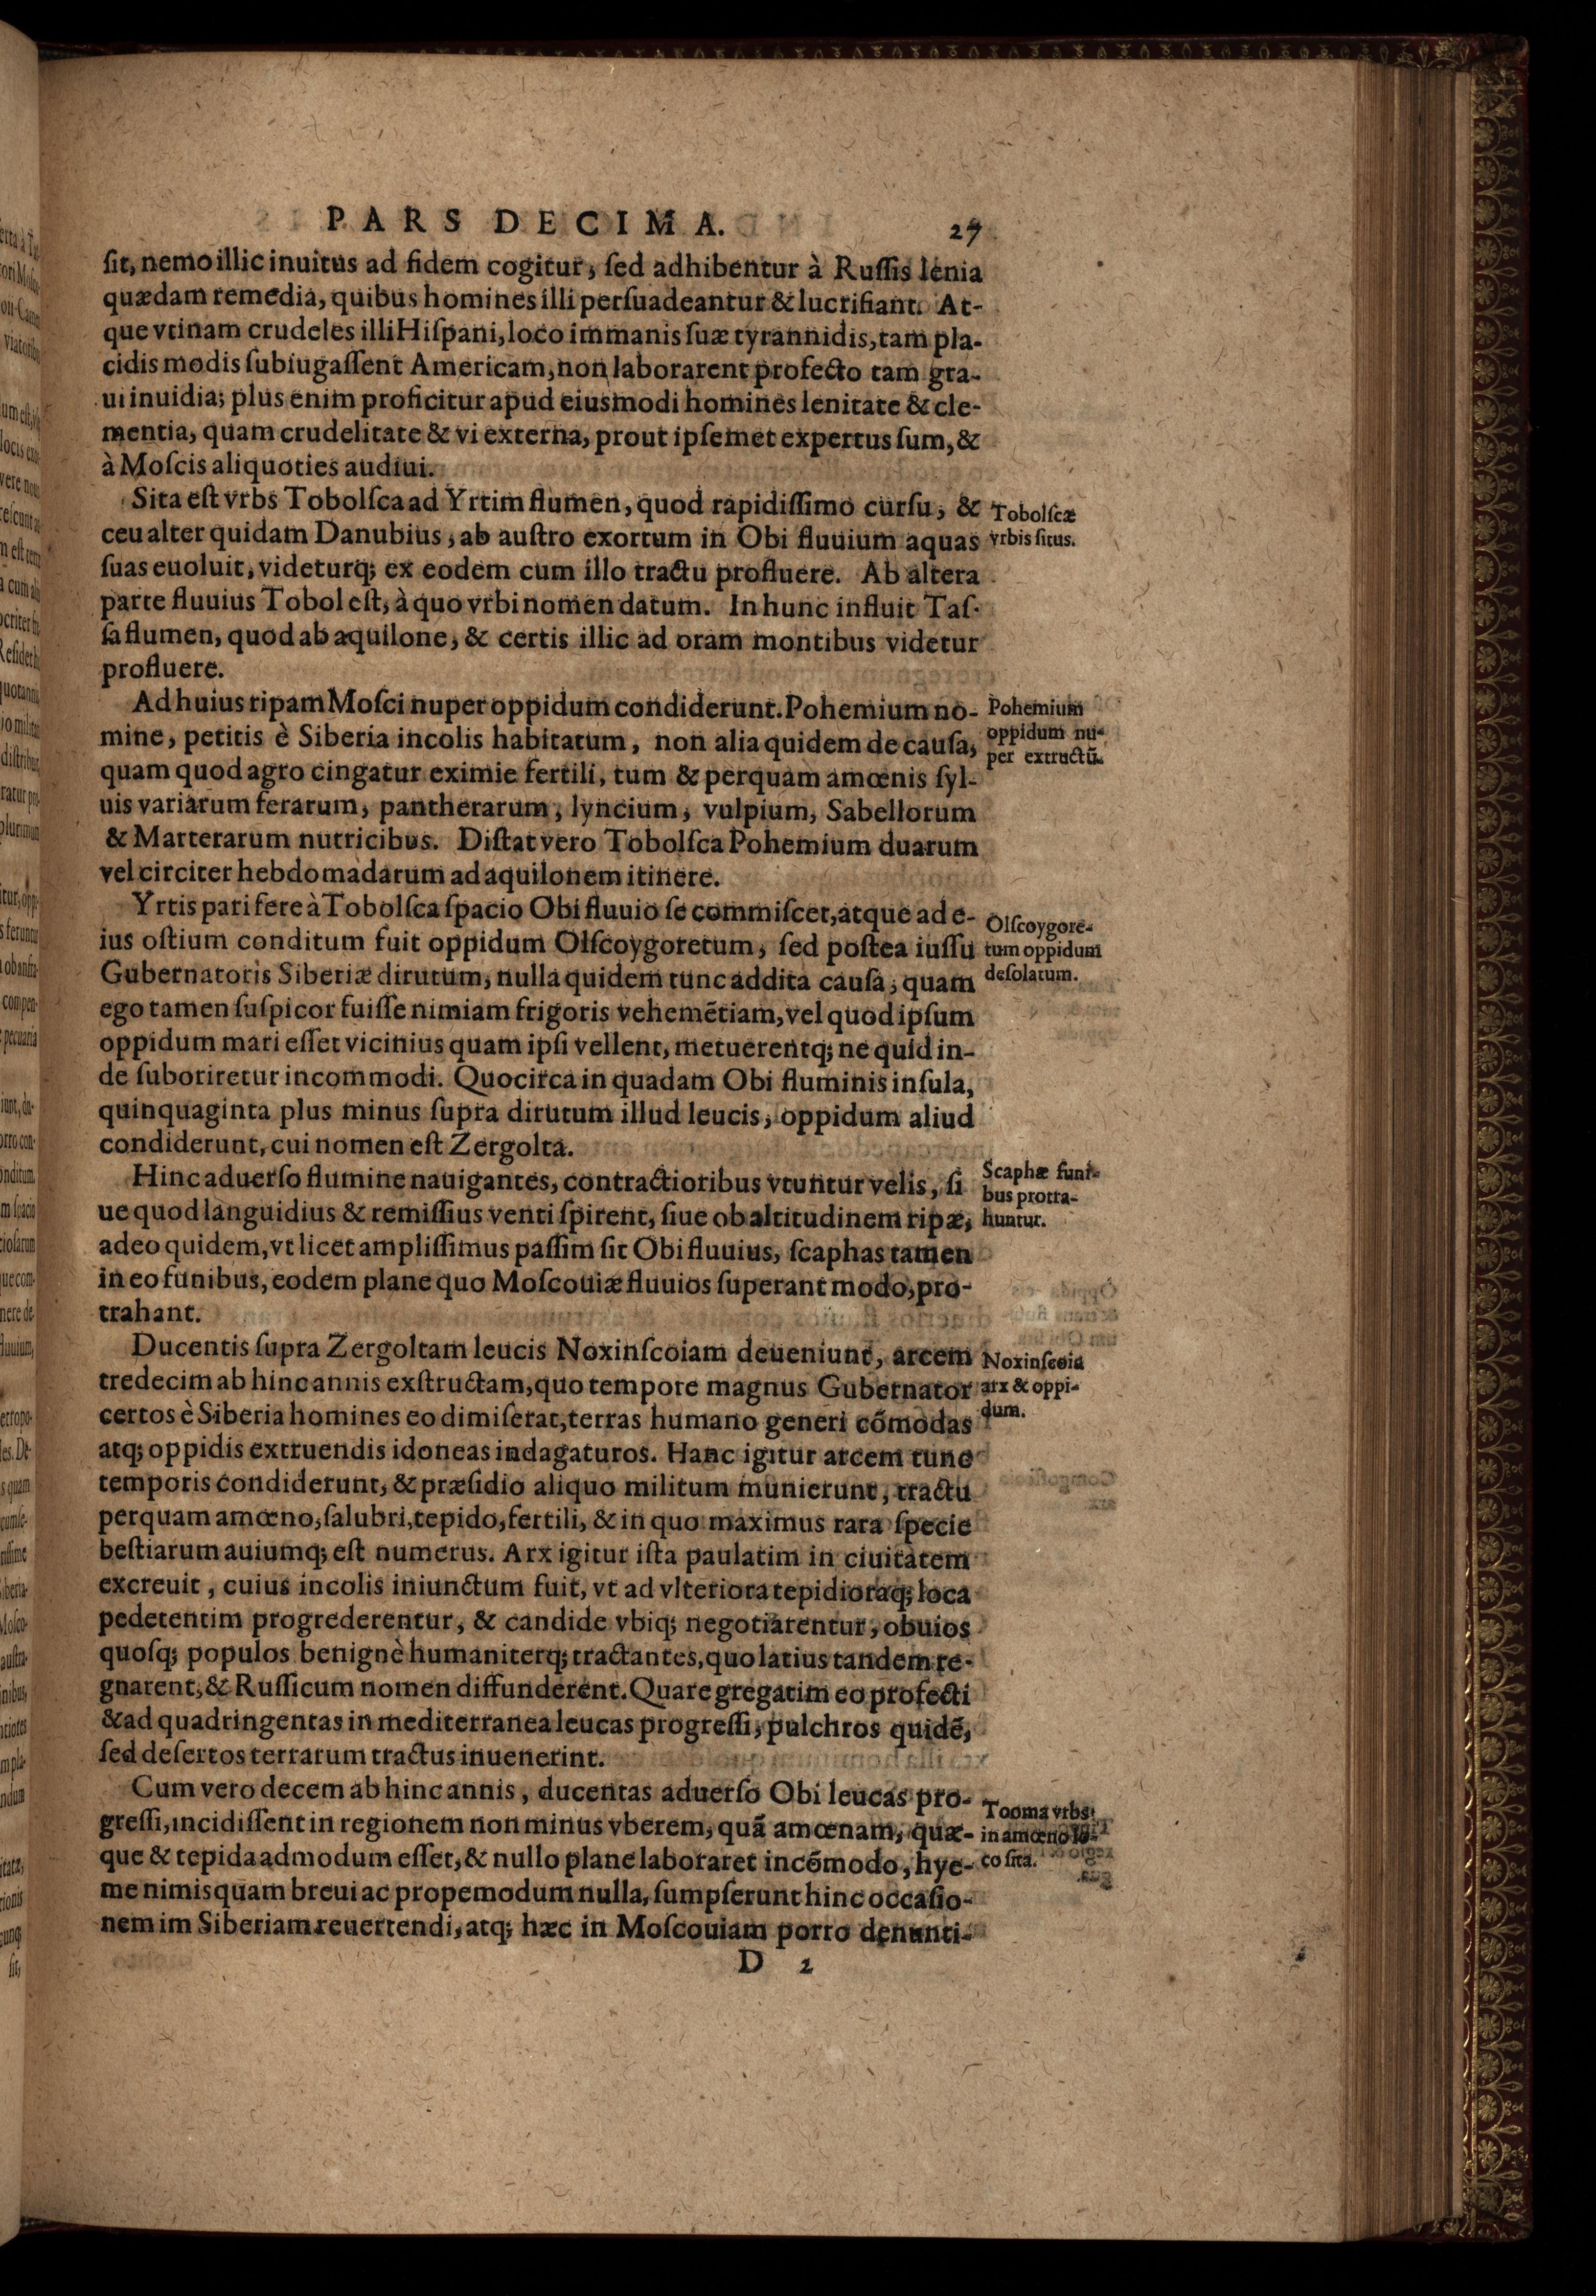 PARS DECIMA. 27
ſit, nemo illic inuitus ad fidem cogitur, ſed adhibentur à Ruſſis lenia
quædam remedia, quibus homines illi perſuadeantur & lucrifiant. At-
que vtinam crudeles illi Hiſpani, loco immanis ſuæ tyrannidis, tam pla-
cidis modis ſubiugaſſent Americam, non laborarent profecto tam gra-
ui inuidia; plus enim proficitur apud eiusmodi homines lenitate & cle-
mentia, quam crudelitate & vi externa, prout ipſemet expertus ſum, &
à Moſcis aliquoties audiui.
Sita eſt vrbs Tobolſca ad Yrtim flumen, quod rapidiſſimo curſu, &
ceu alter quidam Danubius, ab auſtro exortum in Obi fluuium aquas
ſuas euoluit, videturq; ex eodem cum illo tractu profluere. Ab altera
parte fluuius Tobol eſt, à quo vrbi nomen datum. In hunc influit Taſ-
ſa flumen, quod ab aquilone, & certis illic ad oram montibus videtur
profluere.
Tobolſcæ
vrbis ſitus.
Ad huius ripam Moſci nuper oppidum condiderunt. Pohemium no-
mine, petitis è Siberia incolis habitatum, non alia quidem de cauſa,
quam quod agro cingatur eximie fertili, tum & perquam amœnis ſyl-
uis variarum ferarum, pantherarum, lyncium, vulpium, Sabellorum
& Marterarum nutricibus. Diſtat vero Tobolſca Pohemium duarum
vel circiter hebdomadarum ad aquilonem itinere.
Pohemium
oppidum nu-
per extructũ.
Yrtis pari fere à Tobolſca ſpacio Obi fluuio ſe commiſcet, atque ad e-
ius oſtium conditum fuit oppidum Olſcoygoretum, ſed poſtea iuſſu
Gubernatoris Siberiæ dirutum, nulla quidem tunc addita cauſa, quam
ego tamen ſuſpicor fuiſſe nimiam frigoris vehemẽtiam, vel quod ipſum
oppidum mari eſſet vicinius quam ipſi vellent, metuerentq; ne quid in-
de ſuboriretur incommodi. Quocirca in quadam Obi fluminis inſula,
quinquaginta plus minus ſupra dirutum illud leucis, oppidum aliud
condiderunt, cui nomen eſt Zergolta.
Olſcoygore-
tum oppidum
deſolatum.
Hinc aduerſo flumine nauigantes, contractioribus vtuntur velis, ſi
ue quod languidius & remiſſius venti ſpirent, ſiue ob altitudinem ripæ,
adeo quidem, vt licet ampliſſimus paſſim ſit Obi fluuius, ſcaphas tamen
in eo funibus, eodem plane quo Moſcouiæ fluuios ſuperant modo, pro-
trahant.
Scaphæ funi-
bus protra-
huntur.
Ducentis ſupra Zergoltam leucis Noxinſcoiam deueniunt, arcem
tredecim ab hinc annis exſtructam, quo tempore magnus Gubernator
certos è Siberia homines eo dimiſerat, terras humano generi cõmodas
atq; oppidis extruendis idoneas indagaturos. Hanc igitur arcem tunc
temporis condiderunt, & præſidio aliquo militum munierunt, tractu
perquam amœno, ſalubri, tepido, fertili, & in quo maximus rara ſpecie
beſtiarum auiumq; eſt numerus. Arx igitur iſta paulatim in ciuitatem
excreuit, cuius incolis iniunctum fuit, vt ad vlteriora tepidioraq; loca
pedetentim progrederentur, & candide vbiq; negotiarentur, obuios
quoſq; populos benignè humaniterq; tractantes, quo latius tandem re-
gnarent, & Ruſſicum nomen diffunderent. Quare gregatim eo profecti
& ad quadringentas in mediterranea leucas progreſſi, pulchros quidẽ,
ſed deſertos terrarum tractus inuenerint.
Noxinſcoia
arx & oppi-
dum.
Cum vero decem ab hinc annis, ducentas aduerſo Obi leucas pro-
greſſi, incidiſſent in regionem non minus vberem, quã amœnam, quæ-
que & tepida admodum eſſet, & nullo plane laboraret incõmodo, hye-
me nimisquam breui ac propemodum nulla, ſumpſerunt hinc occaſio-
nem im Siberiam reuertendi, atq; hæc in Moſcouiam porro denunti-
Tooma vrbs
in amœno lo-
co ſita.
D 2